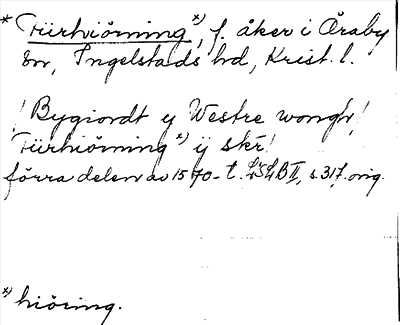 * Tiirhiörning *), f. åker i Öraby
sn, Ingelstads hd, Krist. l.
! Bygiordt ij Westre wongh!
Tiirhiörning *) ij skr!
förra delen av 1570-t. LSLB II, s. 317. orig.
*) hiöring.